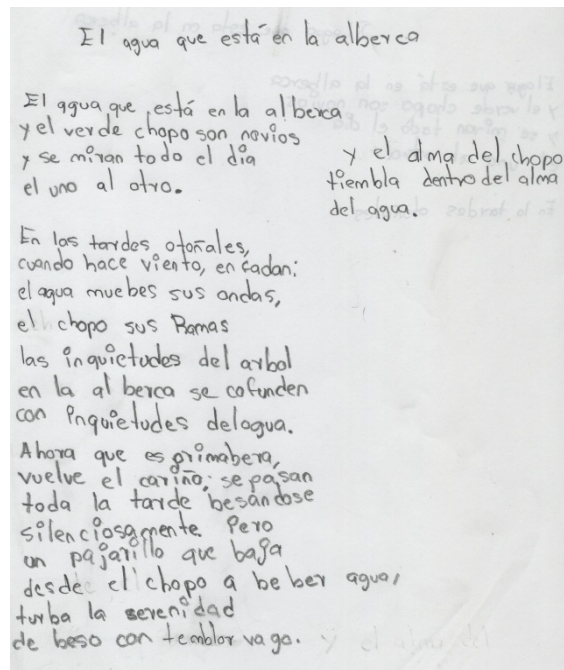 El agua que está en la alberca
El agua que está en la alberca
y el verde chopo son novios
y se miran todo el día
el uno al otro.
En las tardes otoñales,
cuando hace viento, enfadan:
el agua muebes sus ondas,
el chopo sus Ramas
las inquietudes del arbol
en la alberca se cofunden
con inquietudes delagua.
Ahora que es primabera,
vuelve el cariño; se pasan
toda la tarde besándose
silenciosamente. Pero
un pajarillo que baja
desde el chopo a beber agua,
turba la serenidad
de beso con temblor vago.
y el alma del chopo
tiembla dentro del alma
del agua.